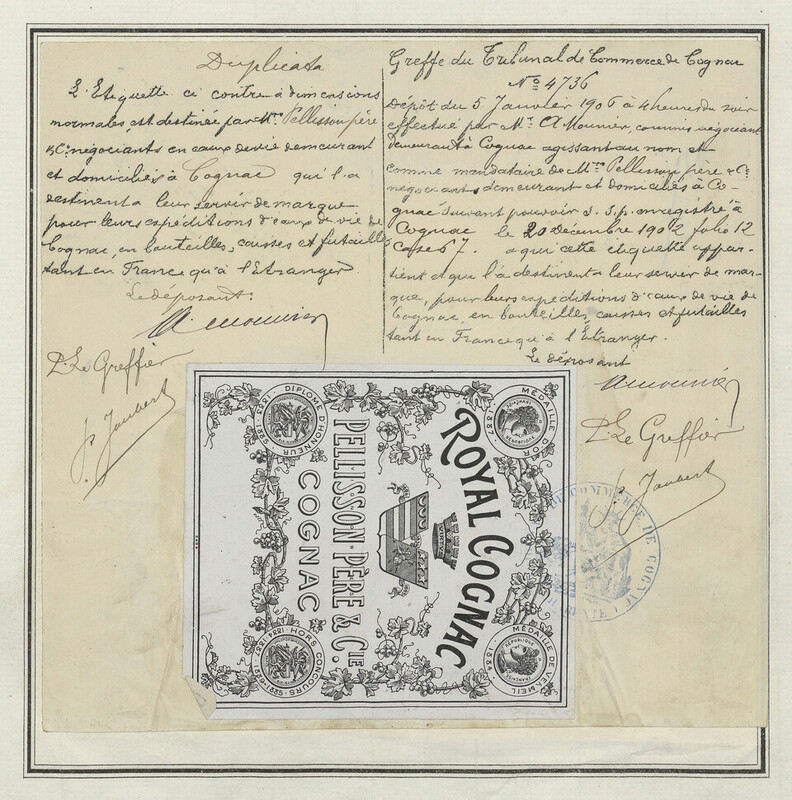 Duplicata
L'Etiquette ci contre à dimensions
normales, est destinée par Mrs Pellisson père
& Cie négociants en eaux de vie demeurant
et domiciliés à Cognac qui l'a
destinent à leur servir de marque
pour leurs expéditions d'eaux de vie de
Cognac, en bouteilles, caisses et futailles
tant en France qu'à l'Etranger.
Le déposant:
A. Mounier
P. Le Greffier
Jaubert
Greffe du Tribunal de Commerce de Cognac
No 4736
Dépôt du 5 Janvier 1906 à 4 heures du soir
effectué par Mr. A Mounier, commis négociant
demeurant à Cognac agissant au nom et
comme mandataire de Mrs Pellisson père & Cie
négociants demeurant et domiciliés à Co-
gnac suivant pouvoir s. s.p. enregistré à
Cognac le 20 Décembre 1902 folio 12
Case 67. à qui cette étiquette appar-
tient et qui l'a destinent à leur servir de mar-
que, pour leurs expéditions d'eaux de vie de
Cognac, en bouteilles, caisses et futailles
tant en France qu'à l'Etranger.
Le déposant
A. Mounier
P. Le Greffier
Jaubert
DE COMMERCE DE COGNAC
ROYAL COGNAC
PELLISSON PÈRE & CIE
COGNAC
DIPLOME D'HONNEUR
MÉDAILLE D'OR
HORS CONCOURS
MÉDAILLE DE VERMEIL
RÉPUBLIQUE FRANÇAISE